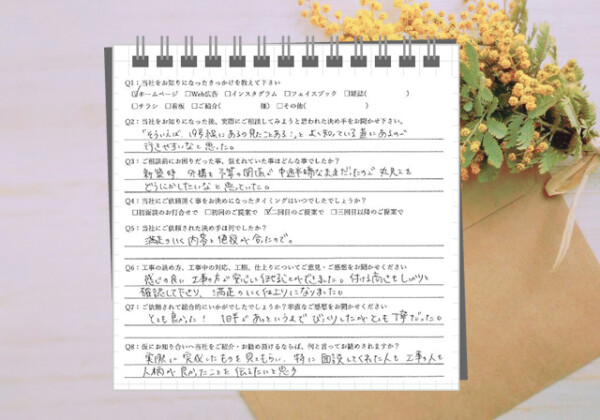 Q1：当社をお知りになったきっかけを教えて下さい
☑ホームページ □Web広告 □インスタグラム □フェイスブック □雑誌( )
□チラシ □看板 □ご紹介( 様) □その他( )
Q2：当社をお知りになった後、実際にご相談してみようと思われた決め手をお聞かせ下さい。
「そういえば、19号線にあるの見たことある！」と よく知っている道にあるので
行きやすいなと思った。
Q3：ご相談前にお困りだった事、悩まれていた事はどんな事でしたか？
新築時 外構も予算の関係で 中途半端なままだったので
どうにかしたいなと思っていた。
Q4：当社にご依頼頂く事をお決めになったタイミングはいつでしたでしょうか？
□初面談のお打合せで □初回のご提案で ☑二回目のご提案で □三回目以降のご提案で
Q5：当社にご依頼された決め手は何でしたか？
満足のいく内容と値段が合ったので。
Q6：工事の決め方、工事中の対応、工期、仕上りについてご意見・ご感想をお聞かせください
感じの良い 工事の方で安心してお任せすることができました。付ける高さもしっかり
確認して下さり、満足のいく仕上りになりました。
Q7：ご依頼されて総合的にいかがでしたでしょうか？率直なご感想をお聞かせください
とても良かった！ 1日半であっというまで びっくりしたが とても丁寧だった。
Q8：仮にお知り合いへ当社をご紹介・お勧め頂けるならば、何と言ってお勧めされますか？
実際に完成したものを見てもらい、特に面談してくれた人も 工事の人も
人柄が良かったことを伝えたいと思う